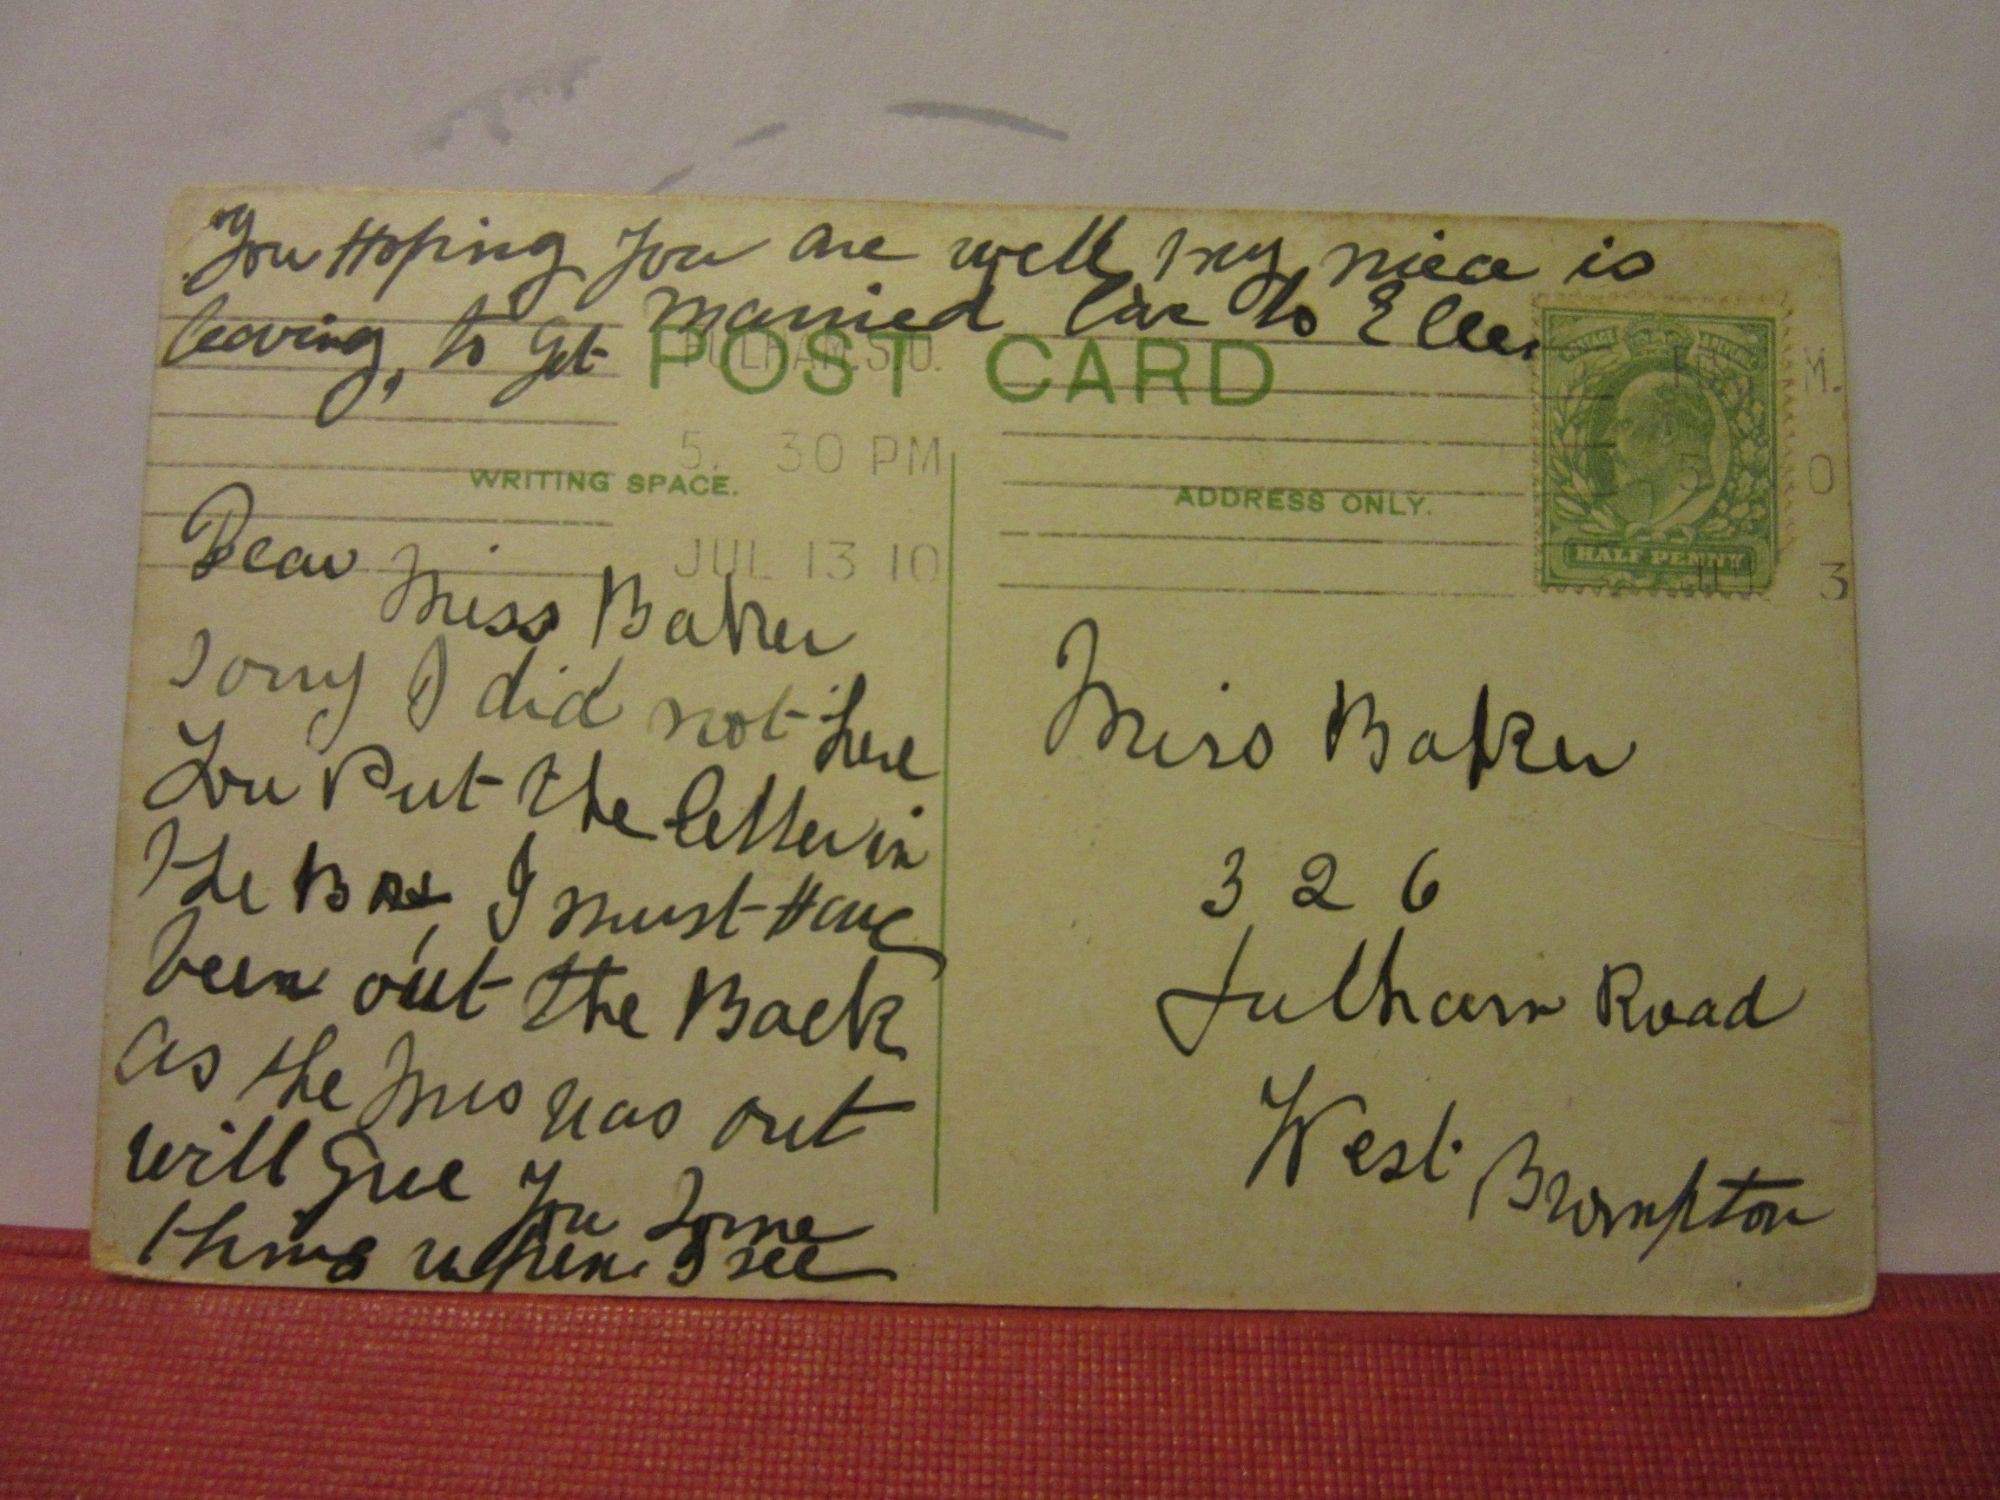 You Hoping you are well, my niece is
leaving, to get married to Ellen
POST CARD
FULHAM. S.O.
5. 30 PM
JUL 13 10
WRITING SPACE.
ADDRESS ONLY.
HALF PENNY
Dear Miss Baker
Sorry I did not here
You Put the letter in
the Box, I must Have
been out the Back
as the was out
will give you Some
thing when I see
Miss Baker
326
Fulham Road
West Brompton